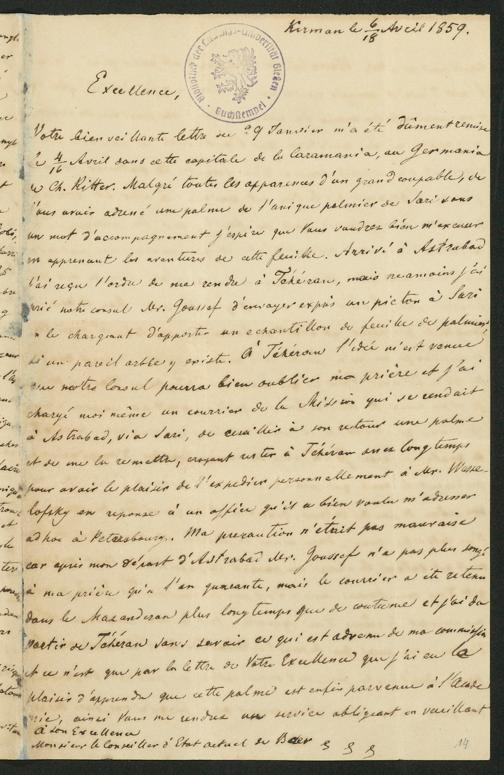 Kirman le 6/18 Avril 1859.
Bibliothek der Ludwigs-Universität Giessen
Buchstempel
Excellence,
Votre bienveillante lettre du 9 Janvier m'a été dûment remise
le 4/16 Avril dans cette capitale de la Caramania, ou Germania
de Ch. Ritter. Malgré toutes les apparences d'un grand coupable, de
Vous avoir adressé une palme de l'unique palmier de Sari sans
un mot d'accompagnement j'espère que Vous voudrez bien m'excuser
en apprenant les aventures de cette feuille. Arrivé à Astrabad
j'ai reçu l'ordre de me rendre à Téhéran, mais néanmoins j'ai
prié notre consul Mr. Goussef d'envoyer exprès un piéton à Sari
en le chargeant d'apporter un echantillon de feuille de palmier,
si un pareil arbre y existe. À Téhéran l'idée m'est venue
que notre Consul pourra bien oublier ma prière et j'ai
chargé moi même un courrier de la Mission qui se rendait
à Astrabad, via Sari, de cueillir à son retour une palme
et de me la remettre, croyant rester à Téhéran assez longtemps
pour avoir le plaisir de l'expedier personnellement à Mr. Wesse-
lofsky en reponse à un office qu'il a bien voulu m'adresser
ad hoc à Petersbourg. Ma precaution n'était pas mauvaise
car après mon départ d'Astrabad Mr. Goussef n'a pas plus songé
à ma prière qu'à l'an quarante, mais le courrier a été retenu
dans le Mazanderan plus longtemps que de coutume et j'ai dû
partir de Téhéran sans savoir ce qui est advenu de ma commission
et ce n'est que par la lettre de Votre Excellence que j'ai eu le
plaisir d'apprendre que cette palme est enfin parvenue à l'Acadé
mie, ainsi Vous me rendez un service obligeant en veuillant
à Son Excellence
Monsieur le Conseiller d'Etat actuel de Baer
14